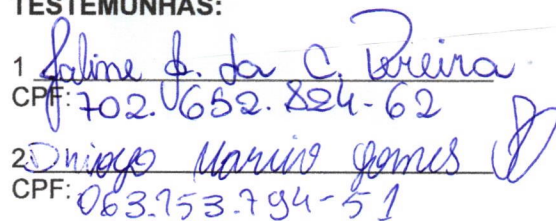 TESTEMUNHAS:
1 Jaline p. da C. Pereira
CPF: 702.652.824-62
2 Thiago Marino Gomes
CPF: 063.153.794-51